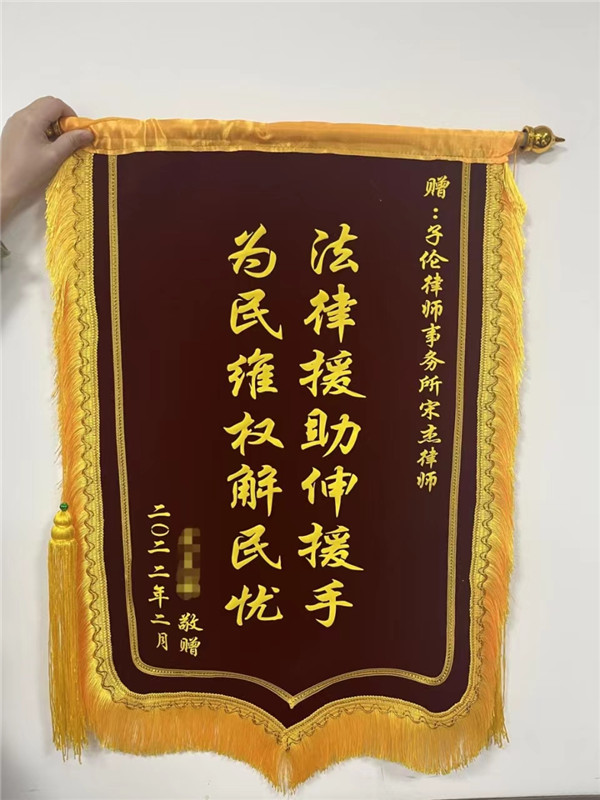 赠：子伦律师事务所宋杰律师
法律援助伸援手
为民维权解民忧
敬赠
二〇二二年二月